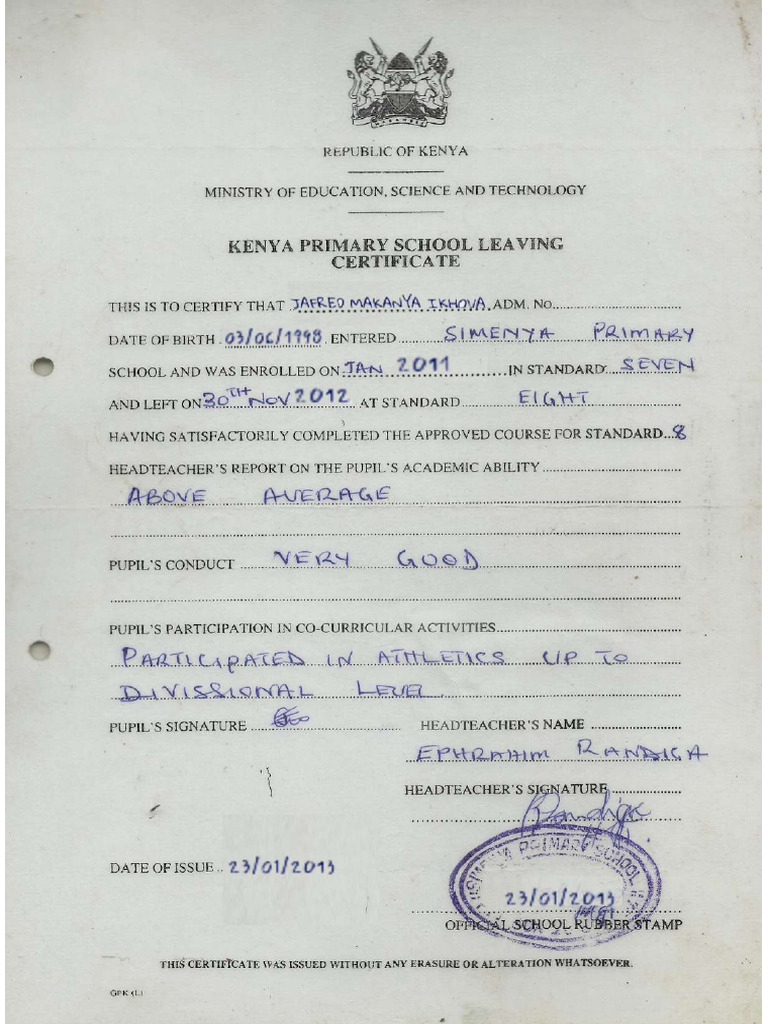 HARAMBEE
REPUBLIC OF KENYA
MINISTRY OF EDUCATION, SCIENCE AND TECHNOLOGY
KENYA PRIMARY SCHOOL LEAVING
CERTIFICATE
THIS IS TO CERTIFY THAT JAFRED MAKANYA IKHOVA ADM. No.
DATE OF BIRTH 03/06/1998 ENTERED SIMENYA PRIMARY
SCHOOL AND WAS ENROLLED ON JAN 2011 IN STANDARD SEVEN
AND LEFT ON 30TH NOV 2012 AT STANDARD EIGHT
HAVING SATISFACTORILY COMPLETED THE APPROVED COURSE FOR STANDARD 8
HEADTEACHER'S REPORT ON THE PUPIL'S ACADEMIC ABILITY
ABOVE AVERAGE
PUPIL'S CONDUCT VERY GOOD
PUPIL'S PARTICIPATION IN CO-CURRICULAR ACTIVITIES
PARTICIPATED IN ATHLETICS UP TO
DIVISSIONAL LEVEL
PUPIL'S SIGNATURE HEADTEACHER'S NAME
EPHRAHIM RANDIGA
HEADTEACHER'S SIGNATURE
DATE OF ISSUE 23/01/2013
PRIMARY SCHOOL
23/01/2013
OFFICIAL SCHOOL RUBBER STAMP
THIS CERTIFICATE WAS ISSUED WITHOUT ANY ERASURE OR ALTERATION WHATSOEVER.
GPK (L)